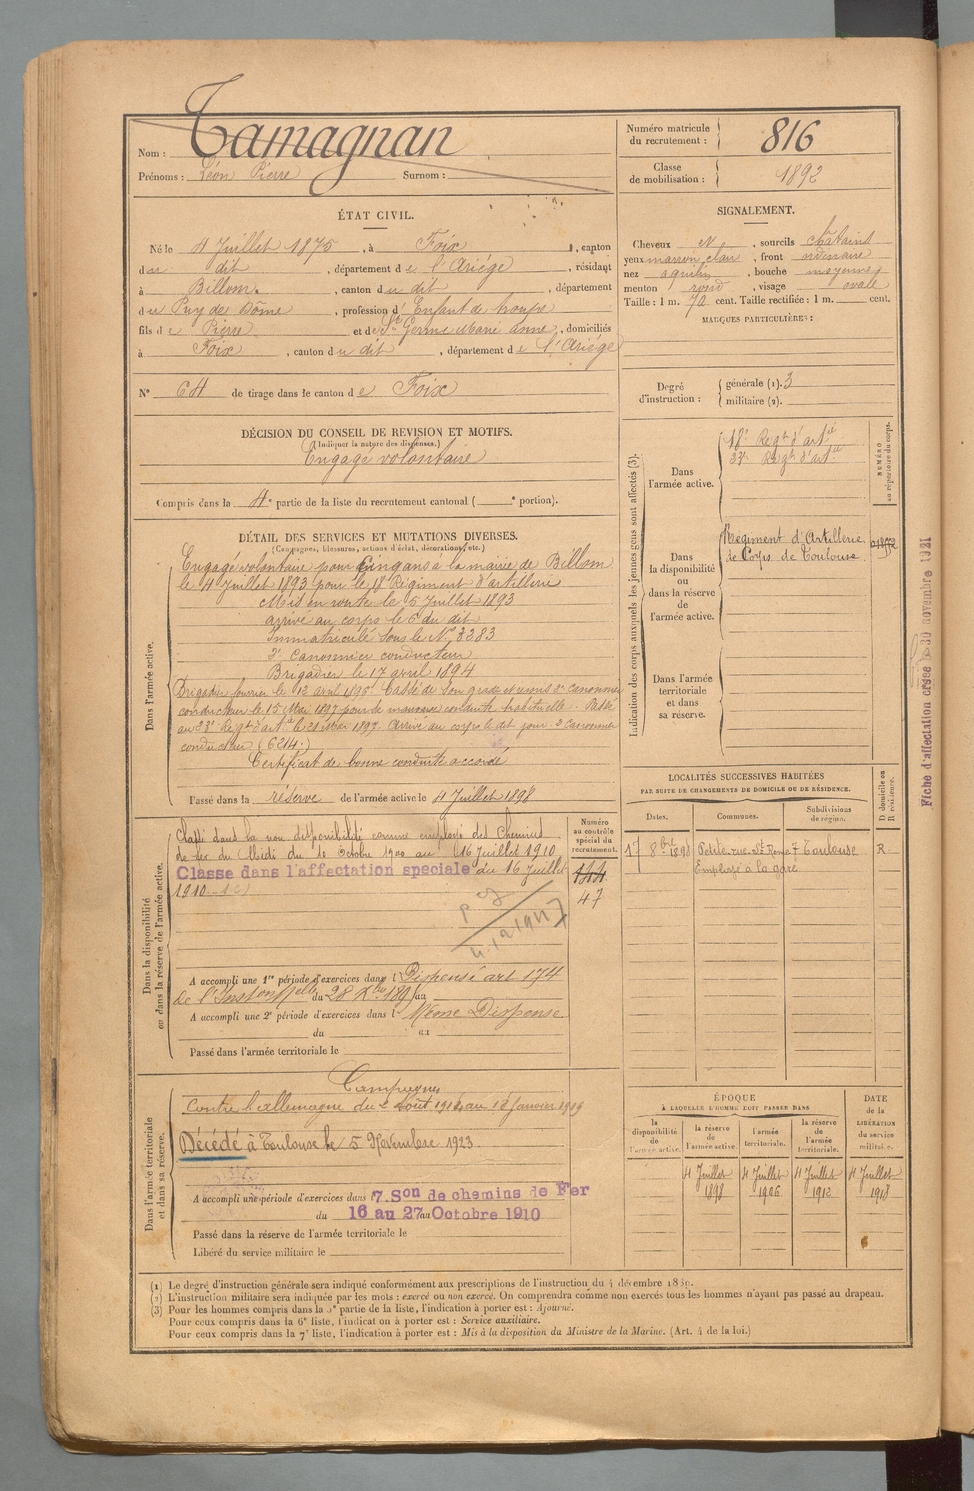 Nom : Tamagnan
Prénoms : Léon Pierre Surnom :
Numéro matricule du recrutement : 816
Classe de mobilisation : 1892
ÉTAT CIVIL.
Né le 4 Juillet 1875, à Foix, canton
du dit, département de l'Ariége, résidant
à Billom, canton du dit, département
du Puy de Dôme, profession d'Enfant de troupe
fils de Pierre et de St Germe Marie Anne, domiciliés
à Foix, canton du dit, département de l'Ariége
N° 64 de tirage dans le canton de Foix
SIGNALEMENT.
Cheveux N, sourcils châtains
yeux marron clair, front ordinaire
nez aquilin, bouche moyenne
menton rond, visage ovale
Taille : 1 m. 70 cent. Taille rectifiée : 1 m. cent.
MARQUES PARTICULIÈRES :
Degré d'instruction : générale (1). 3
militaire (2).
DÉCISION DU CONSEIL DE REVISION ET MOTIFS.
(Indiquer la nature des dispenses.)
Engagé volontaire
Compris dans la 4e partie de la liste du recrutement cantonal ( e portion).
DÉTAIL DES SERVICES ET MUTATIONS DIVERSES.
(Campagnes, blessures, actions d'éclat, décorations, etc.)
Dans l'armée active.
Engagé volontaire pour cinq ans à la mairie de Billom
le 4 Juillet 1893 pour le 18e Régiment d'artillerie
Mis en route le 5 Juillet 1893
arrivé au corps le 6 du dit
Immatriculé sous le N° 3383
2e canonnier conducteur
Brigadier le 17 avril 1894
Brigadier fourrier le 12 avril 1896. Cassé de son grade et remis 2e Canonnier
conducteur le 15 Mai 1897 pour le mauvaise conduite habituelle. Passé
au 23e Regt d'artie le 21 Mai 1897. Arrivé au corps le dit jour. 2e Canonnier
conducteur (6214.)
Certificat de bonne conduite accordé
Passé dans la réserve de l'armée active le 4 Juillet 1898
Indication des corps auxquels les jeunes gens sont affectés (3).
NUMÉRO au répertoire du corps.
Dans l'armée active.
18e Regt d'artie
23e Regt d'artie
Dans la disponibilité ou dans la réserve de l'armée active.
Régiment d'Artillerie
de Corps de Toulouse
Dans l'armée territoriale et dans sa réserve.
Fiche d'affectation créée le 30 novembre 1921
Dans la disponibilité ou dans la réserve de l'armée active.
Numéro au contrôle spécial du recrutement.
Classé dans la non disponibilité comme employé des Chemins
de fer du Midi du 10 Octobre 1900 au 16 Juillet 1910
Classé dans l'affectation spéciale du 16 Juillet
1910
144
47
A accompli une 1re période d'exercices dans l Dispensé art 174
de l'Inston
A accompli une 2e période d'exercices dans l Même Dispense
du au
Passé dans l'armée territoriale le
LOCALITÉS SUCCESSIVES HABITÉES
PAR SUITE DE CHANGEMENTS DE DOMICILE OU DE RÉSIDENCE.
Dates. Communes. Subdivisions de région. D domicile ou R résidence.
17 8bre 1898 Petite rue St Rome 7 Toulouse R
Employé à la gare
Dans l'armée territoriale et dans sa réserve.
Campagnes
Contre l'allemagne du 2 Août 1914 au 13 Janvier 1919
Décédé à Toulouse le 5 Novembre 1923.
A accompli une période d'exercices dans 7. Son de chemins de Fer
du 16 au 27 au Octobre 1910
Passé dans la réserve de l'armée territoriale le
Libéré du service militaire le
ÉPOQUE
À LAQUELLE L'HOMME DOIT PASSER DANS
la disponibilité de l'armée active.
la réserve de l'armée active.
l'armée territoriale.
la réserve de l'armée territoriale.
DATE de la LIBÉRATION du service militaire.
4 Juillet 1898
4 Juillet 1906
4 Juillet 1912
4 Juillet 1918
(1) Le degré d'instruction générale sera indiqué conformément aux prescriptions de l'instruction du 4 décembre 1889.
(2) L'instruction militaire sera indiquée par les mots : exercé ou non exercé. On comprendra comme non exercés tous les hommes n'ayant pas passé au drapeau.
(3) Pour les hommes compris dans la 5e partie de la liste, l'indication à porter est : Ajourné.
Pour ceux compris dans la 6e liste, l'indication à porter est : Service auxiliaire.
Pour ceux compris dans la 7e liste, l'indication à porter est : Mis à la disposition du Ministre de la Marine. (Art. 4 de la loi.)